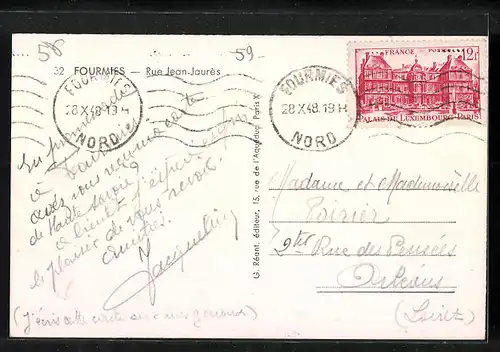 58
59
32 FOURMIES — Rue Jean-Jaurès
FOURMIES
28 X 48. 19 H
NORD
FOURMIES
28 X 48. 19 H
NORD
FRANCE POSTES 12F
PALAIS DU LUXEMBOURG-PARIS
G. Réant, éditeur, 15, rue de l'Aqueduc, Paris X
à Fourmies
avez vous reçu ma carte
de Haute Savoie?
à bientôt j'espère
le plaisir de vous revoir.
Amitiés.
Jacqueline
(J'écris cette carte sur mes genoux)
Madame et Mademoiselle
Poirier
Rue des Pensées
Orléans
(Loiret)